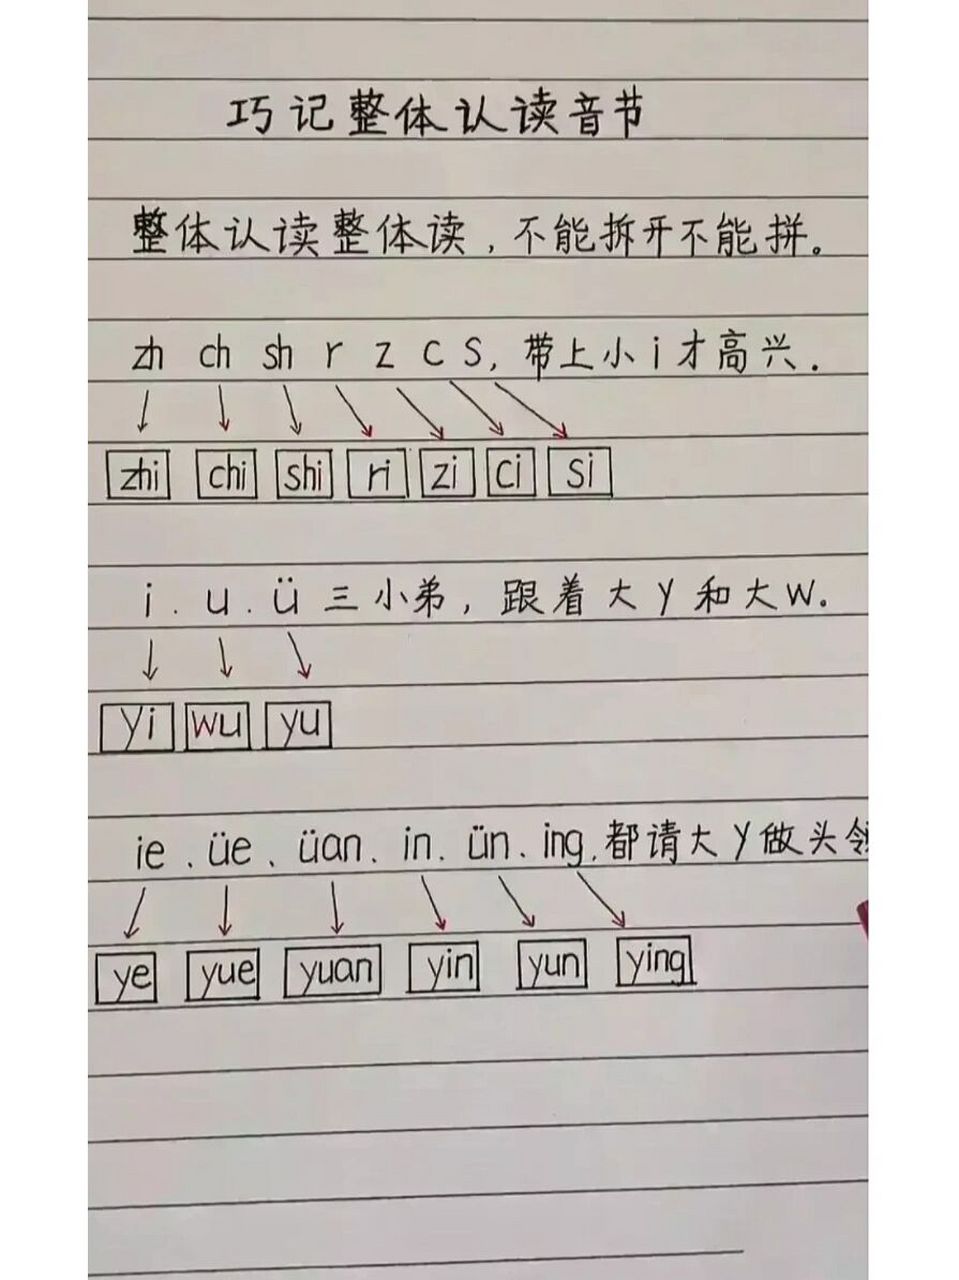 巧记整体认读音节
整体认读整体读，不能拆开不能拼。
zh ch sh r z c s, 带上小i才高兴.
zhi chi shi ri zi ci si
i . u . ü 三小弟，跟着大y和大w.
yi wu yu
ie、üe、üan、in、ün、ing,都请大y做头领
ye yue yuan yin yun ying